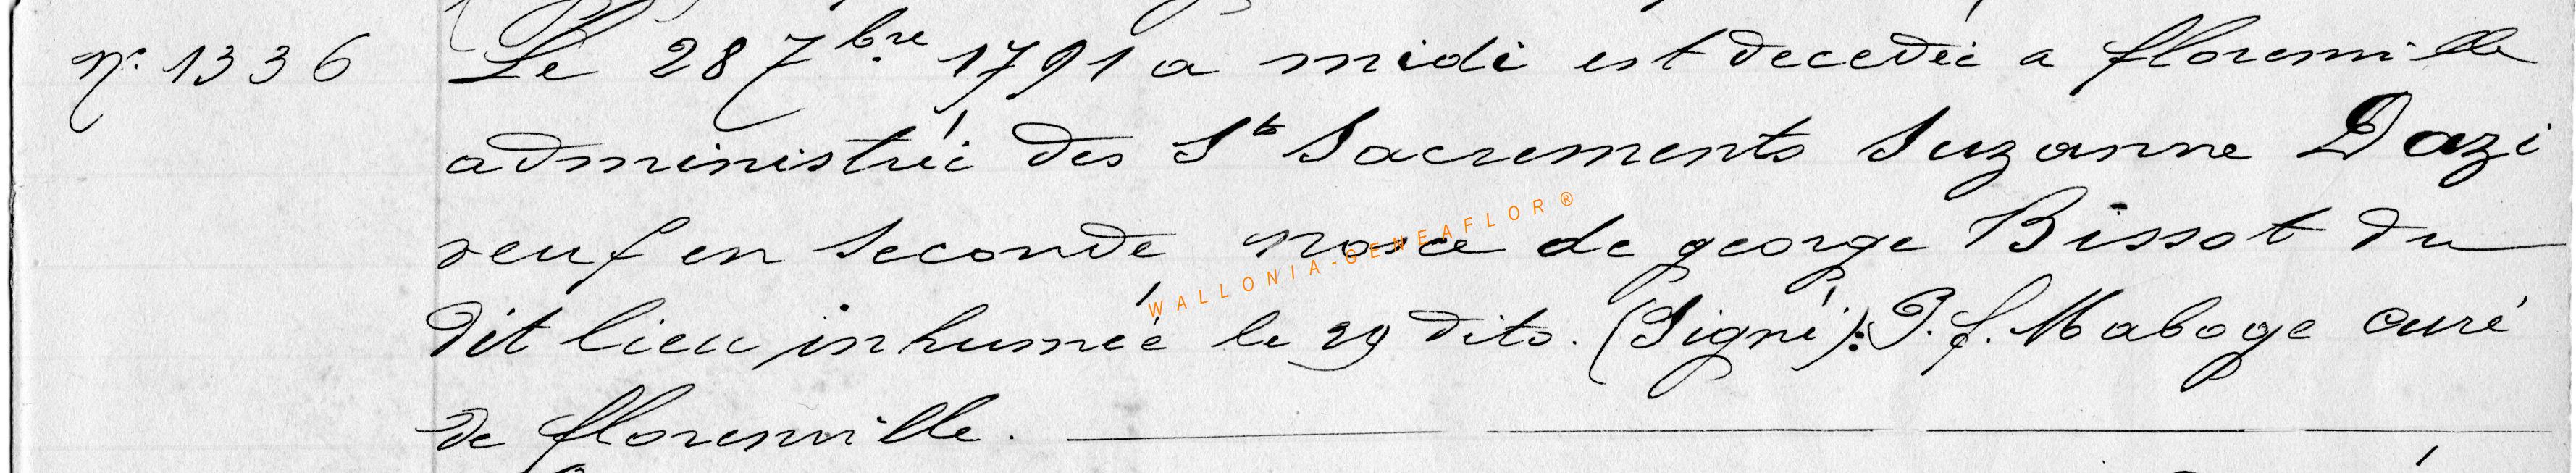 n° 1336 Le 28 7bre 1791 a midi est decedéé a florenville
administréé des Sts Sacrements Suzanne Dazi
veuf en seconde nosce de george Bissot du
dit lieu inhuméé le 29 dito. (Signé): P. f. Maboge curé
de florenville.
WALLONIA-GENEAFLOR®